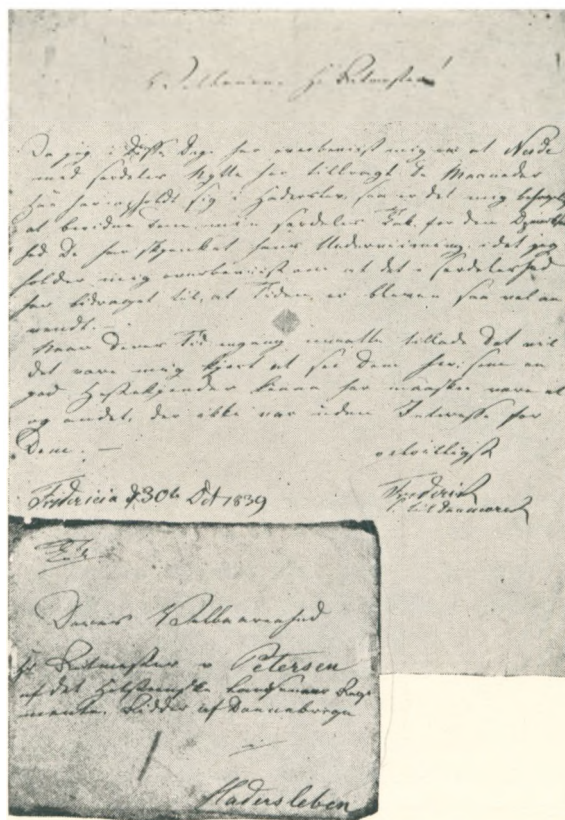 Velbaarne Hr Ritmester!
Da jeg i disse Dage har overbeviist mig om at
med særdeles Nytte har tilbragt de Maaneder
han har opholdt sig i Haderslev, saa er det mig behageligt
at bevidne Dem min særdeles Tak for den
hed De har skjenket hans Underviisning, idet jeg
holder mig overbeviist om at det i Særdeleshed
har bidraget til, at Tiden er bleven saa vel an
vendt. —
Naar Deres Tid engang maatte tillade Det vil
det være mig kjert at see Dem her, som en
god Hestekjender kunne her maaskee være et
og andet, der ikke var uden Interesse for
Dem. —
velvilligst
Fredericia d 30te Oct 1839
Frederik
til Danmark
Deres Velbaarenhed
Hr Ritmester v Petersen
af det Holsteenske Landseneer Regi
mente, Ridder af Dannebroge
Hadersleben